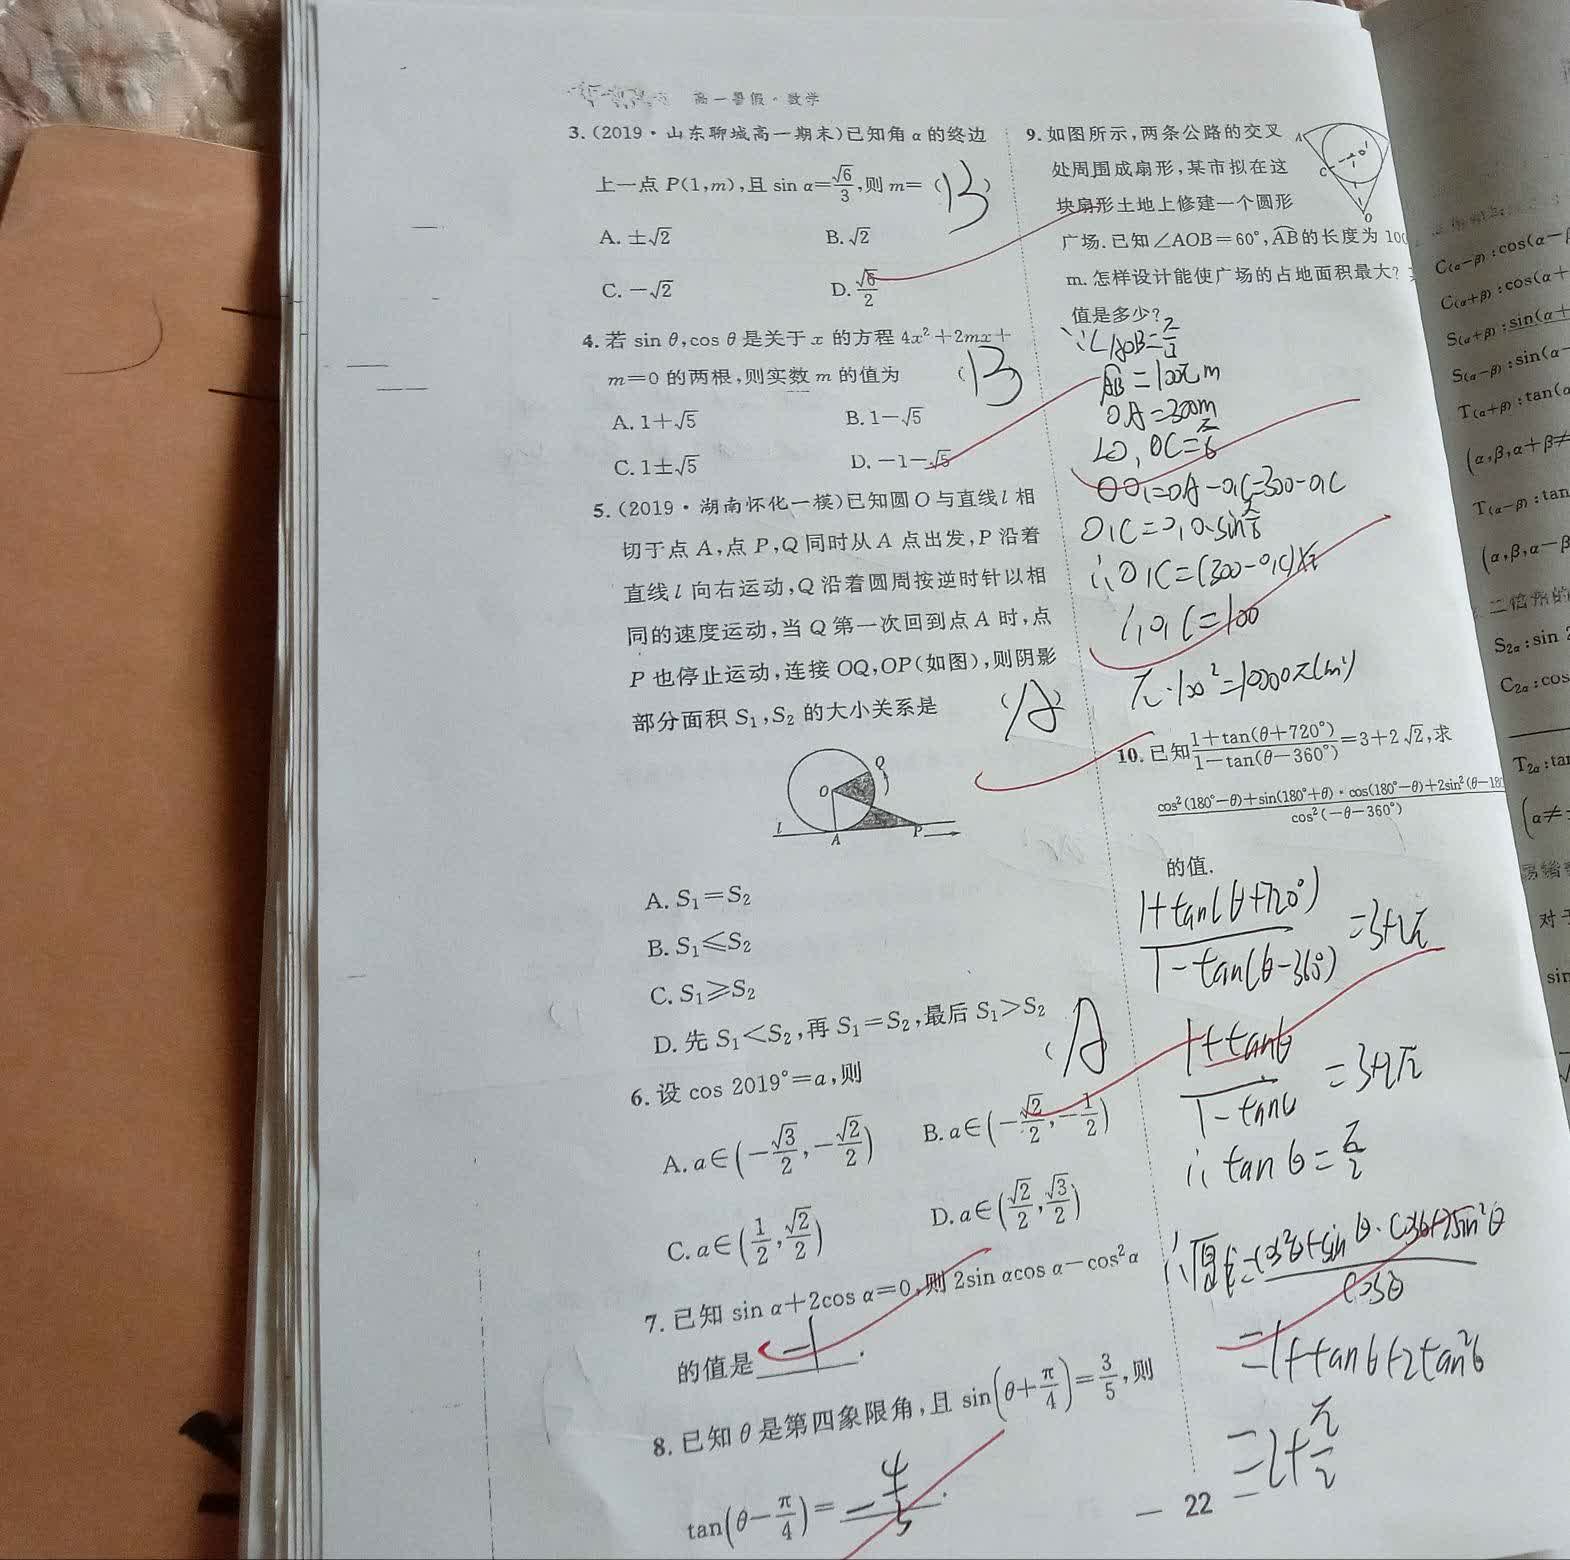 高一暑假·数学
3.(2019·山东聊城高一期末)已知角α的终边
上一点P(1,m),且sin α=√6/3,则m= (B)
A. ±√2 B. √2
C. −√2 D. √6/2
4. 若 sin θ,cos θ是关于x的方程 4x²+2mx+
m=0 的两根,则实数m的值为 (B
A. 1+√5 B. 1−√5
C. 1±√5 D. −1−√5
5.(2019·湖南怀化一模)已知圆O与直线l相
切于点A,点P,Q同时从A点出发,P沿着
直线l向右运动,Q沿着圆周按逆时针以相
同的速度运动,当Q第一次回到点A时,点
P也停止运动,连接OQ,OP(如图),则阴影
部分面积S₁,S₂的大小关系是 (A)
O Q
l A P
A. S₁=S₂
B. S₁≤S₂
C. S₁≥S₂
D. 先S₁<S₂,再S₁=S₂,最后S₁>S₂
6. 设 cos 2019°=a,则 (A
A. a∈(−√3/2,−√2/2) B. a∈(−√2/2,−1/2)
C. a∈(1/2,√2/2) D. a∈(√2/2,√3/2)
7. 已知 sin α+2cos α=0,则 2sin αcos α−cos²α
的值是 −1.
8. 已知θ是第四象限角,且 sin(θ+π/4)=3/5,则
tan(θ−π/4)=
9. 如图所示,两条公路的交叉
处周围成扇形,某市拟在这
块扇形土地上修建一个圆形
广场.已知∠AOB=60°,AB的长度为 100
m. 怎样设计能使广场的占地面积最大?
值是多少?
A C O
AB=100π m
OA=300m
OO₁=OA−O₁C=300−O₁C
∴O₁C=100
π·100²=10000π(m²)
10. 已知 (1+tan(θ+720°))/(1−tan(θ−360°))=3+2√2,求
(cos²(180°−θ)+sin(180°+θ)·cos(180°−θ)+2sin²(θ−18)/(cos²(−θ−360°))
的值.
(1+tan(θ+720°))/(1−tan(θ−360°))=3+2√2
(1+tanθ)/(1−tanθ)=3+2√2
∴tanθ=√2/2
∴原式=(cos²θ+sinθ·cosθ+2sin²θ)/cosθ
=1+tanθ+2tan²θ
=2+√2/2
— 22 —
C(α−β):cos(α−β
C(α+β):cos(α+
S(α+β):sin(α+
S(α−β):sin(α−
T(α+β):tan(α
(α,β,α+β≠
T(α−β):tan
(α,β,α−β
S2α:sin 2
C2α:cos
T2α:tan
(α≠
对于
sin